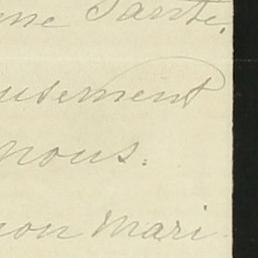 ne Santé.
usement
nous.
mon Mari